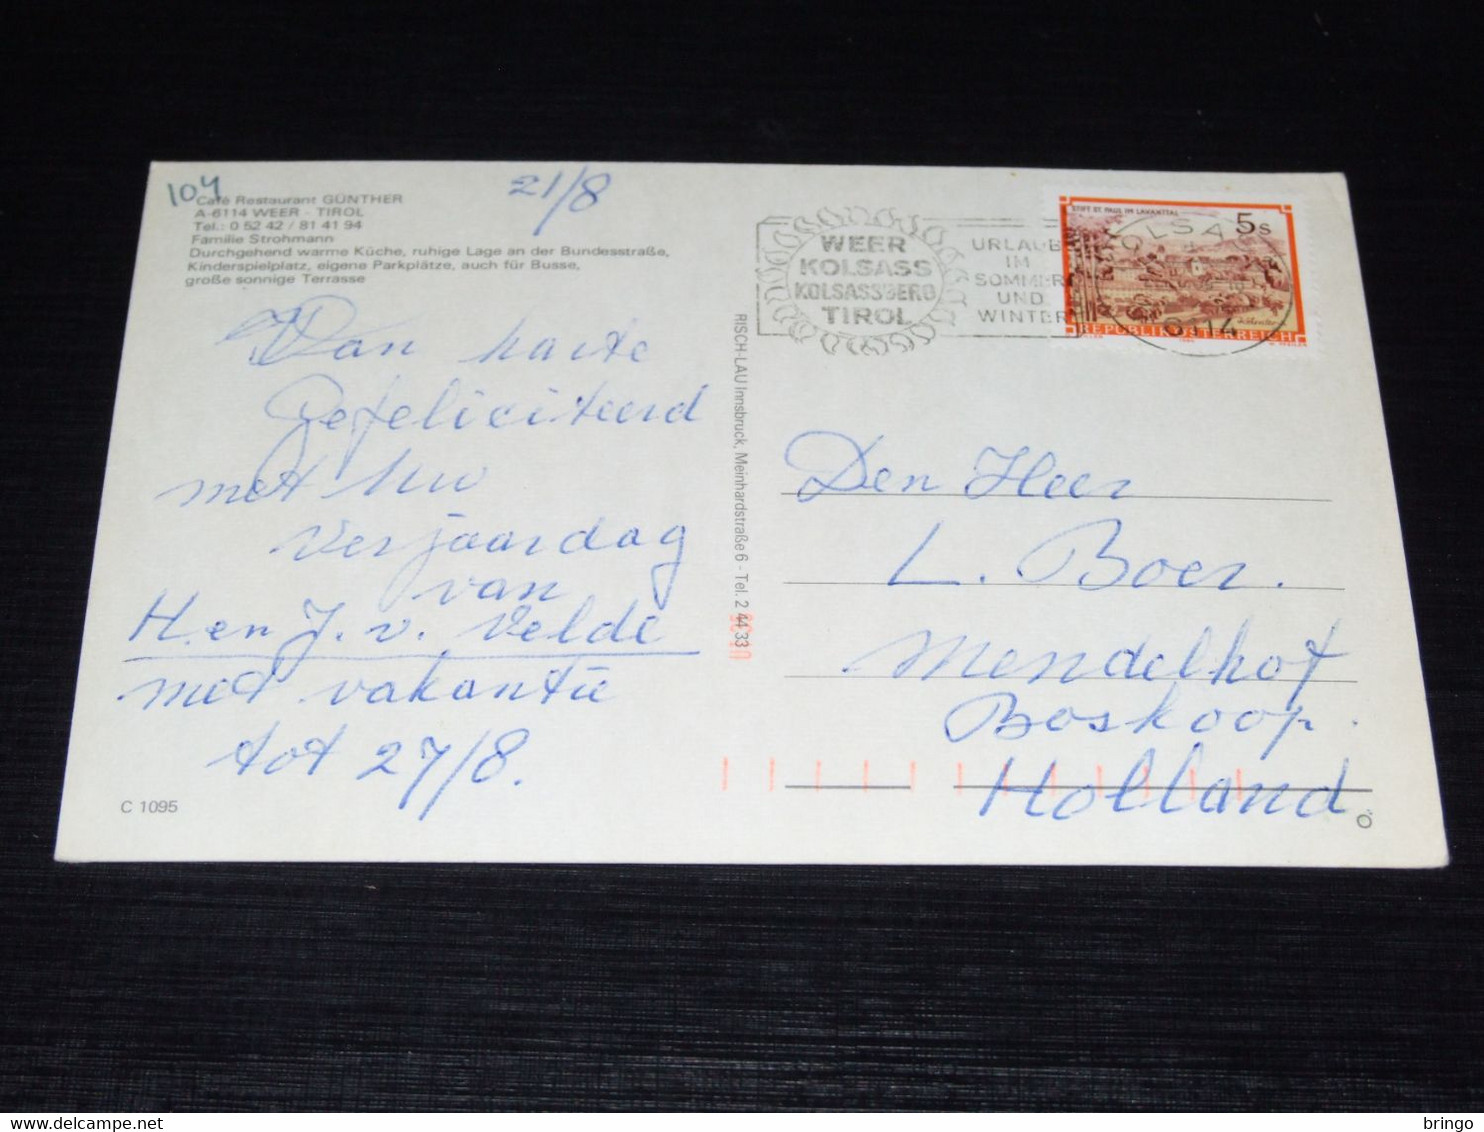 104
21/8
Café Restaurant GÜNTHER
A-6114 WEER - TIROL
Tel.: 0 52 42 / 81 41 94
Familie Strohmann
Durchgehend warme Küche, ruhige Lage an der Bundesstraße,
Kinderspielplatz, eigene Parkplätze, auch für Busse,
große sonnige Terrasse
Van harte
Gefeliciteerd
met uw
verjaardag
van
H. en J. v. Velde
met vakantie
tot 27/8.
C 1095
RISCH-LAU Innsbruck, Meinhardstraße 6 - Tel. 2 44 33
WEER
KOLSASS
KOLSASSBERG
TIROL
URLAUB
IM
SOMMER
UND
WINTER
STIFT ST. PAUL IM LAVANTTAL
5s
REPUBLIK ÖSTERREICH
KOLSASS
6114
Den Heer
L. Boer.
Mendelhof
Boskoop.
Holland
bringo